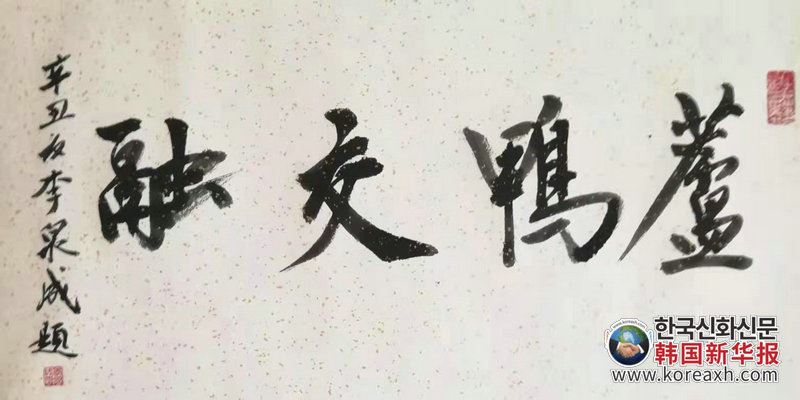 蘆鴨交融
辛丑夏李泉成題
한국신화신문
韩国新华报
www.koreaxh.com